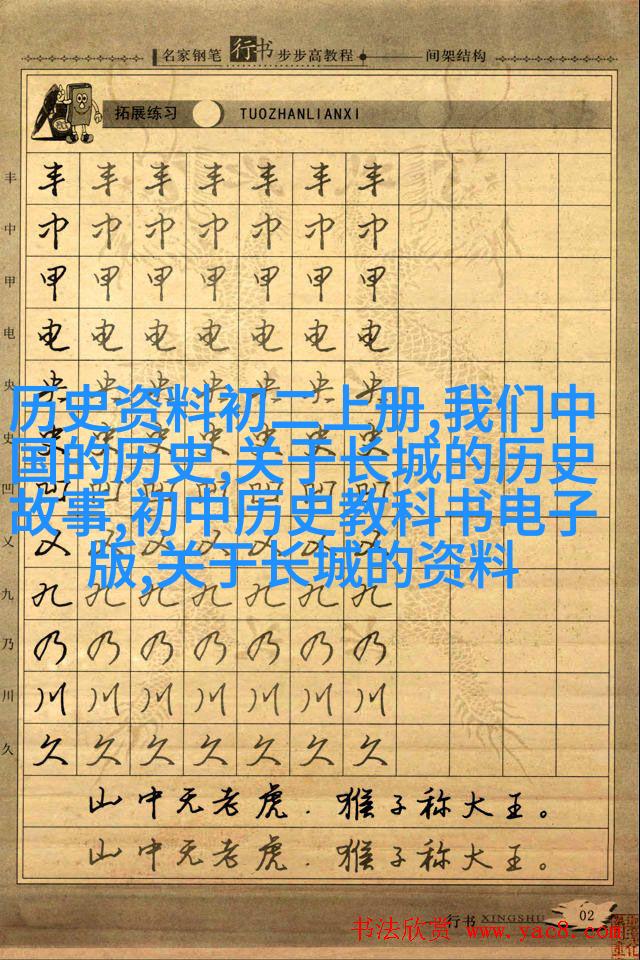 名家钢笔 行书 步步高教程 间架结构
拓展练习 TUOZHANLIANXI
丰 丰 丰 丰 丰 丰 丰 丰
中 中 中 中 中 中 中 中
甲 甲 甲 甲 甲 甲 甲 甲
电 电 电 电 电 电 电 电
央 央 央 央 央 央 央 央
历史资料初二上册,我们中
史 史 史 史 史 史 史 史
国的历史,关于长城的历史
凹 凹 凹 凹 凹 凹 凹 凹
故事,初中历史教科书电子
义 义 义 义 义 义 义 义
版,关于长城的资料
九 九 九 九 九 九 九 九
乃 乃 乃 乃 乃 乃 乃 乃
川 川 川 川 川 川 川 川
久 久 久 久 久 久 久 久
山中无老虎.猴子称大王。
山中无老虎.猴子称大王。
行书 XINGSHU 02
书法欣赏 www.yac8.com